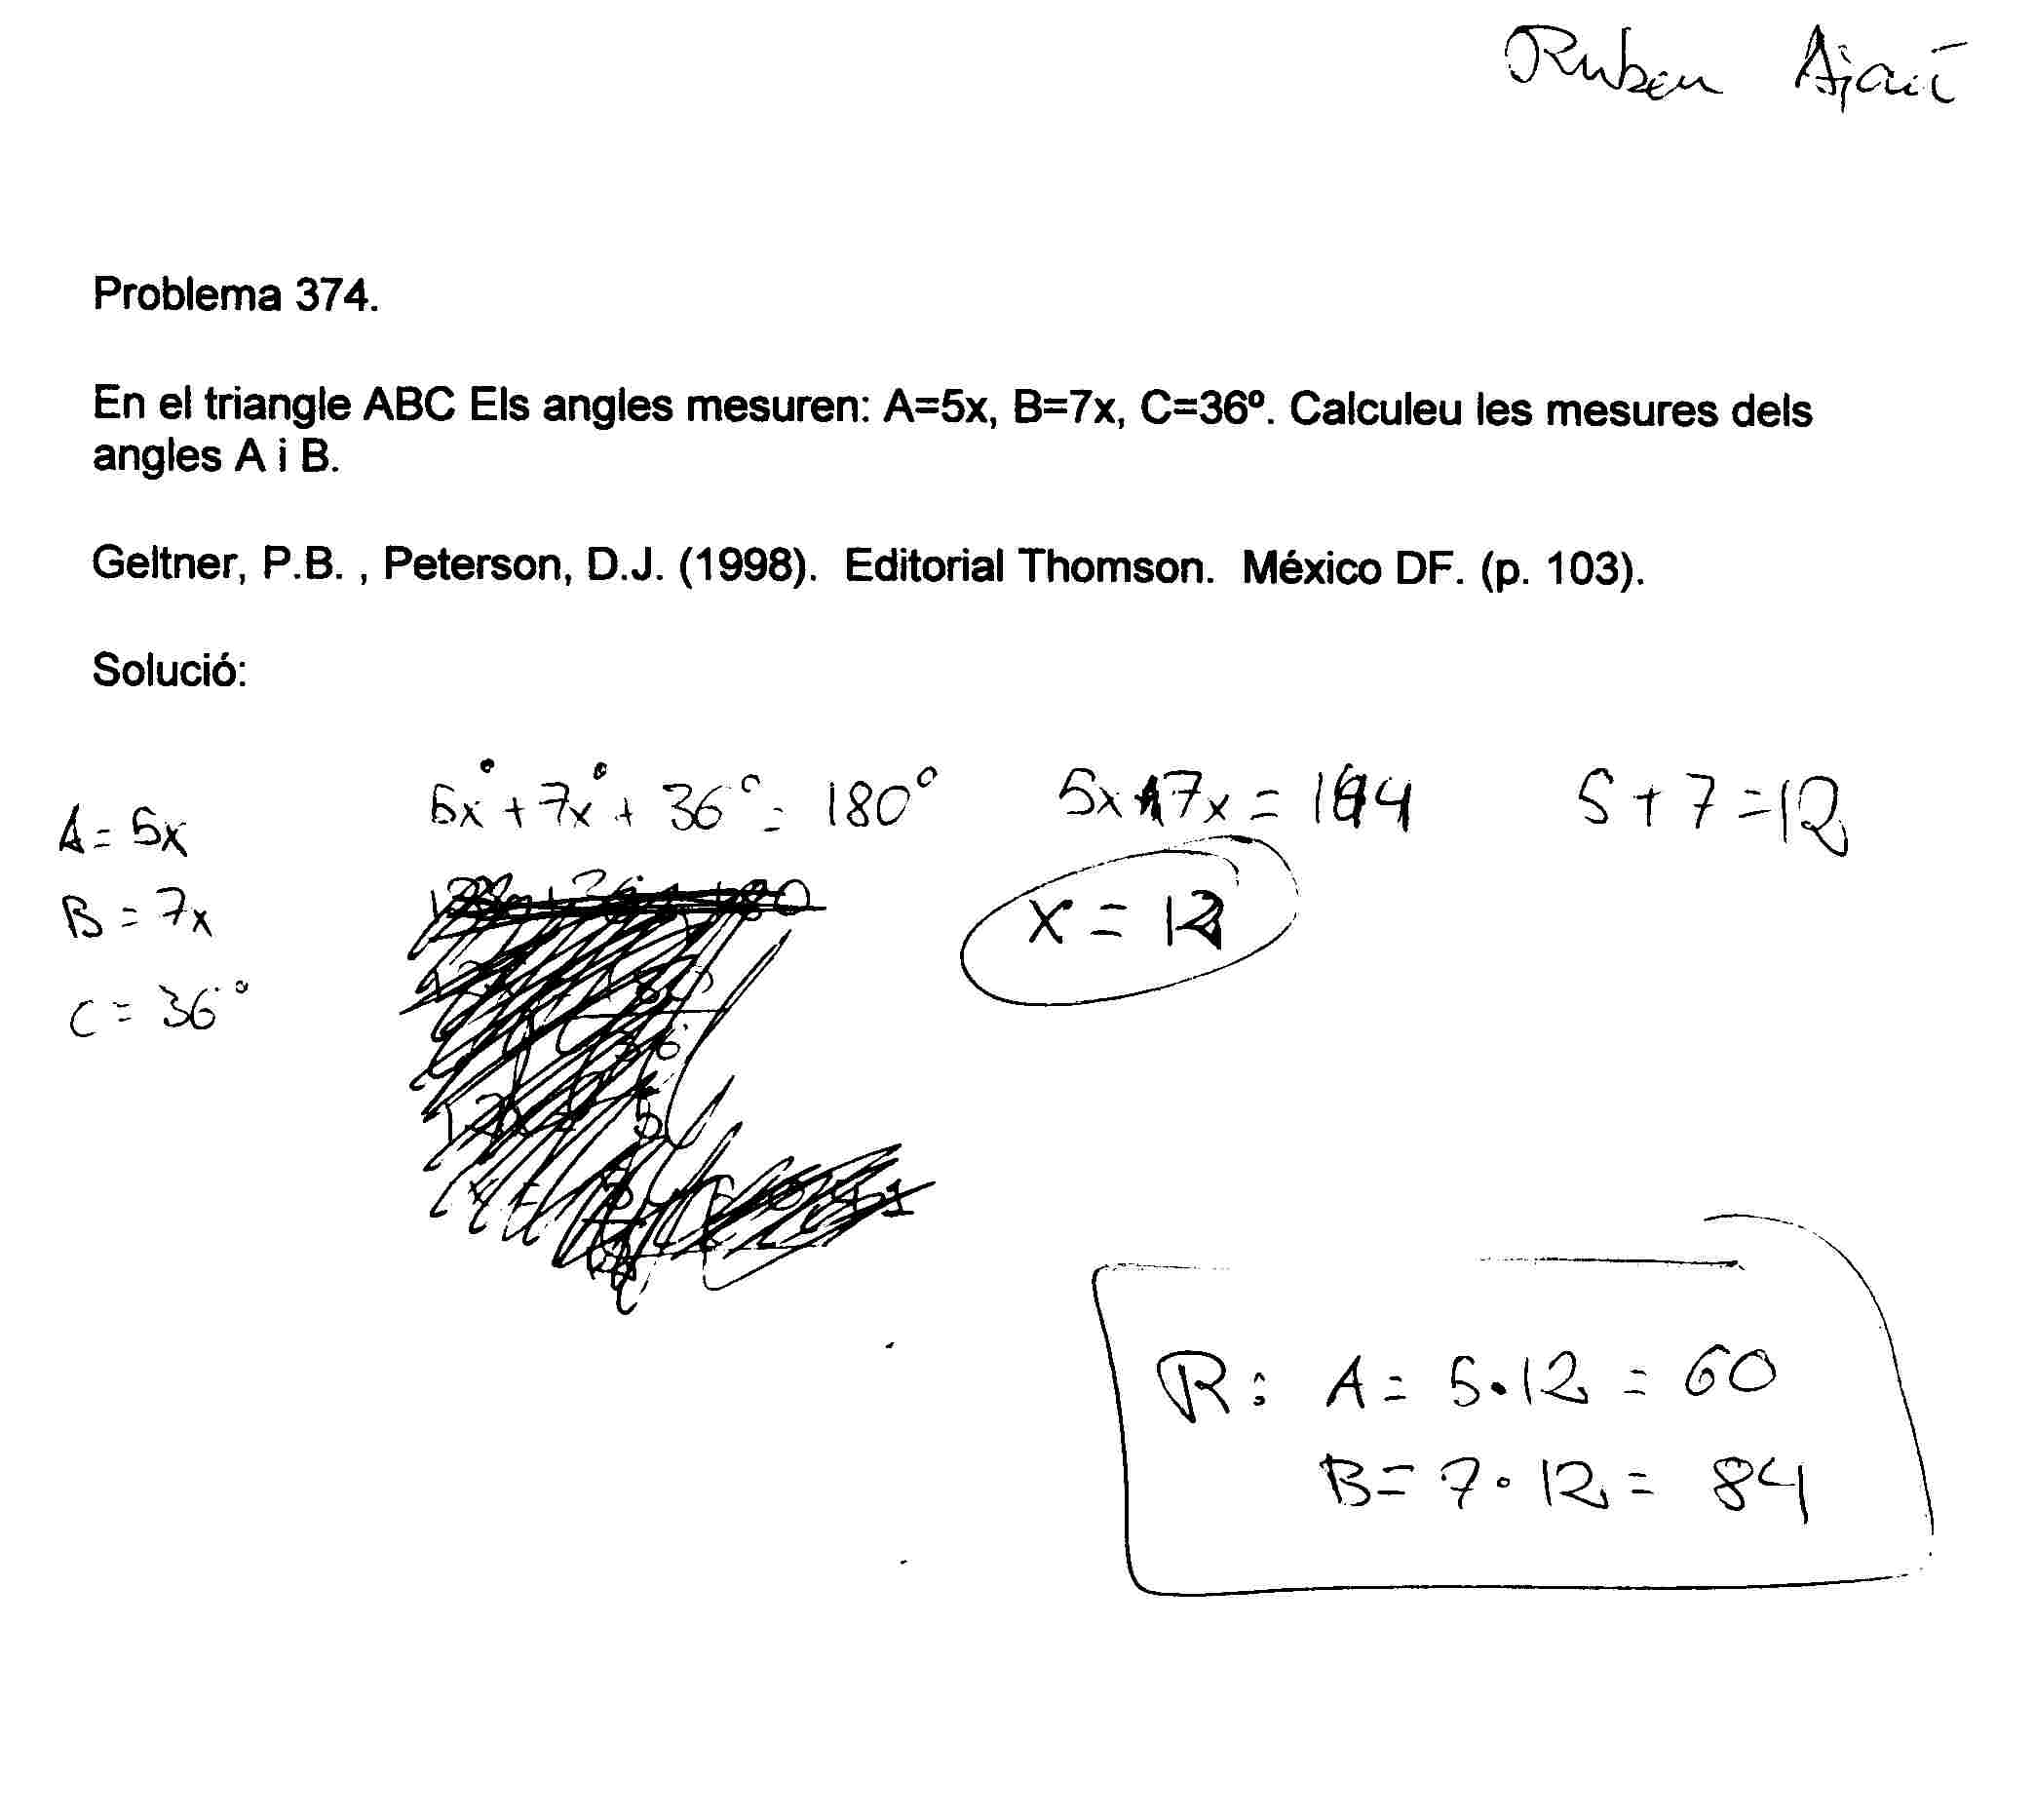 Ruben Ajaú
Problema 374.
En el triangle ABC Els angles mesuren: A=5x, B=7x, C=36º. Calculeu les mesures dels
angles A i B.
Geltner, P.B. , Peterson, D.J. (1998). Editorial Thomson. México DF. (p. 103).
Solució:
A = 5x
B = 7x
C = 36°
5x° + 7x° + 36° = 180°
5x + 7x = 144
5 + 7 = 12
x = 12
R: A = 5·12 = 60
B = 7·12 = 84